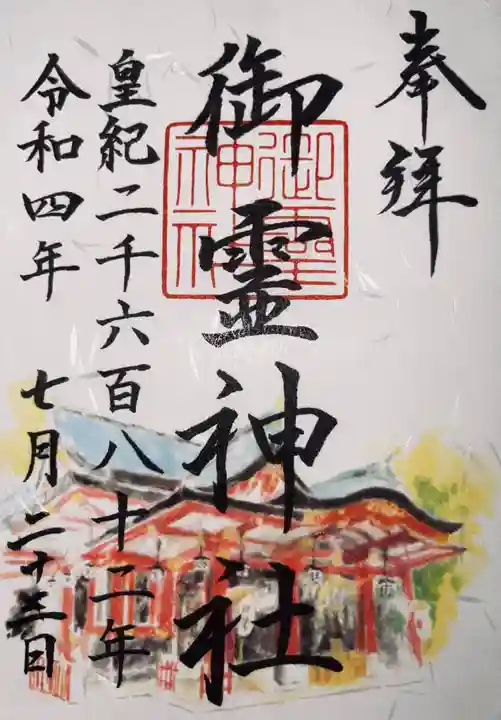 奉拜
御靈神社
皇紀二千六百八十二年
令和四年 七月二十三日
御靈神社